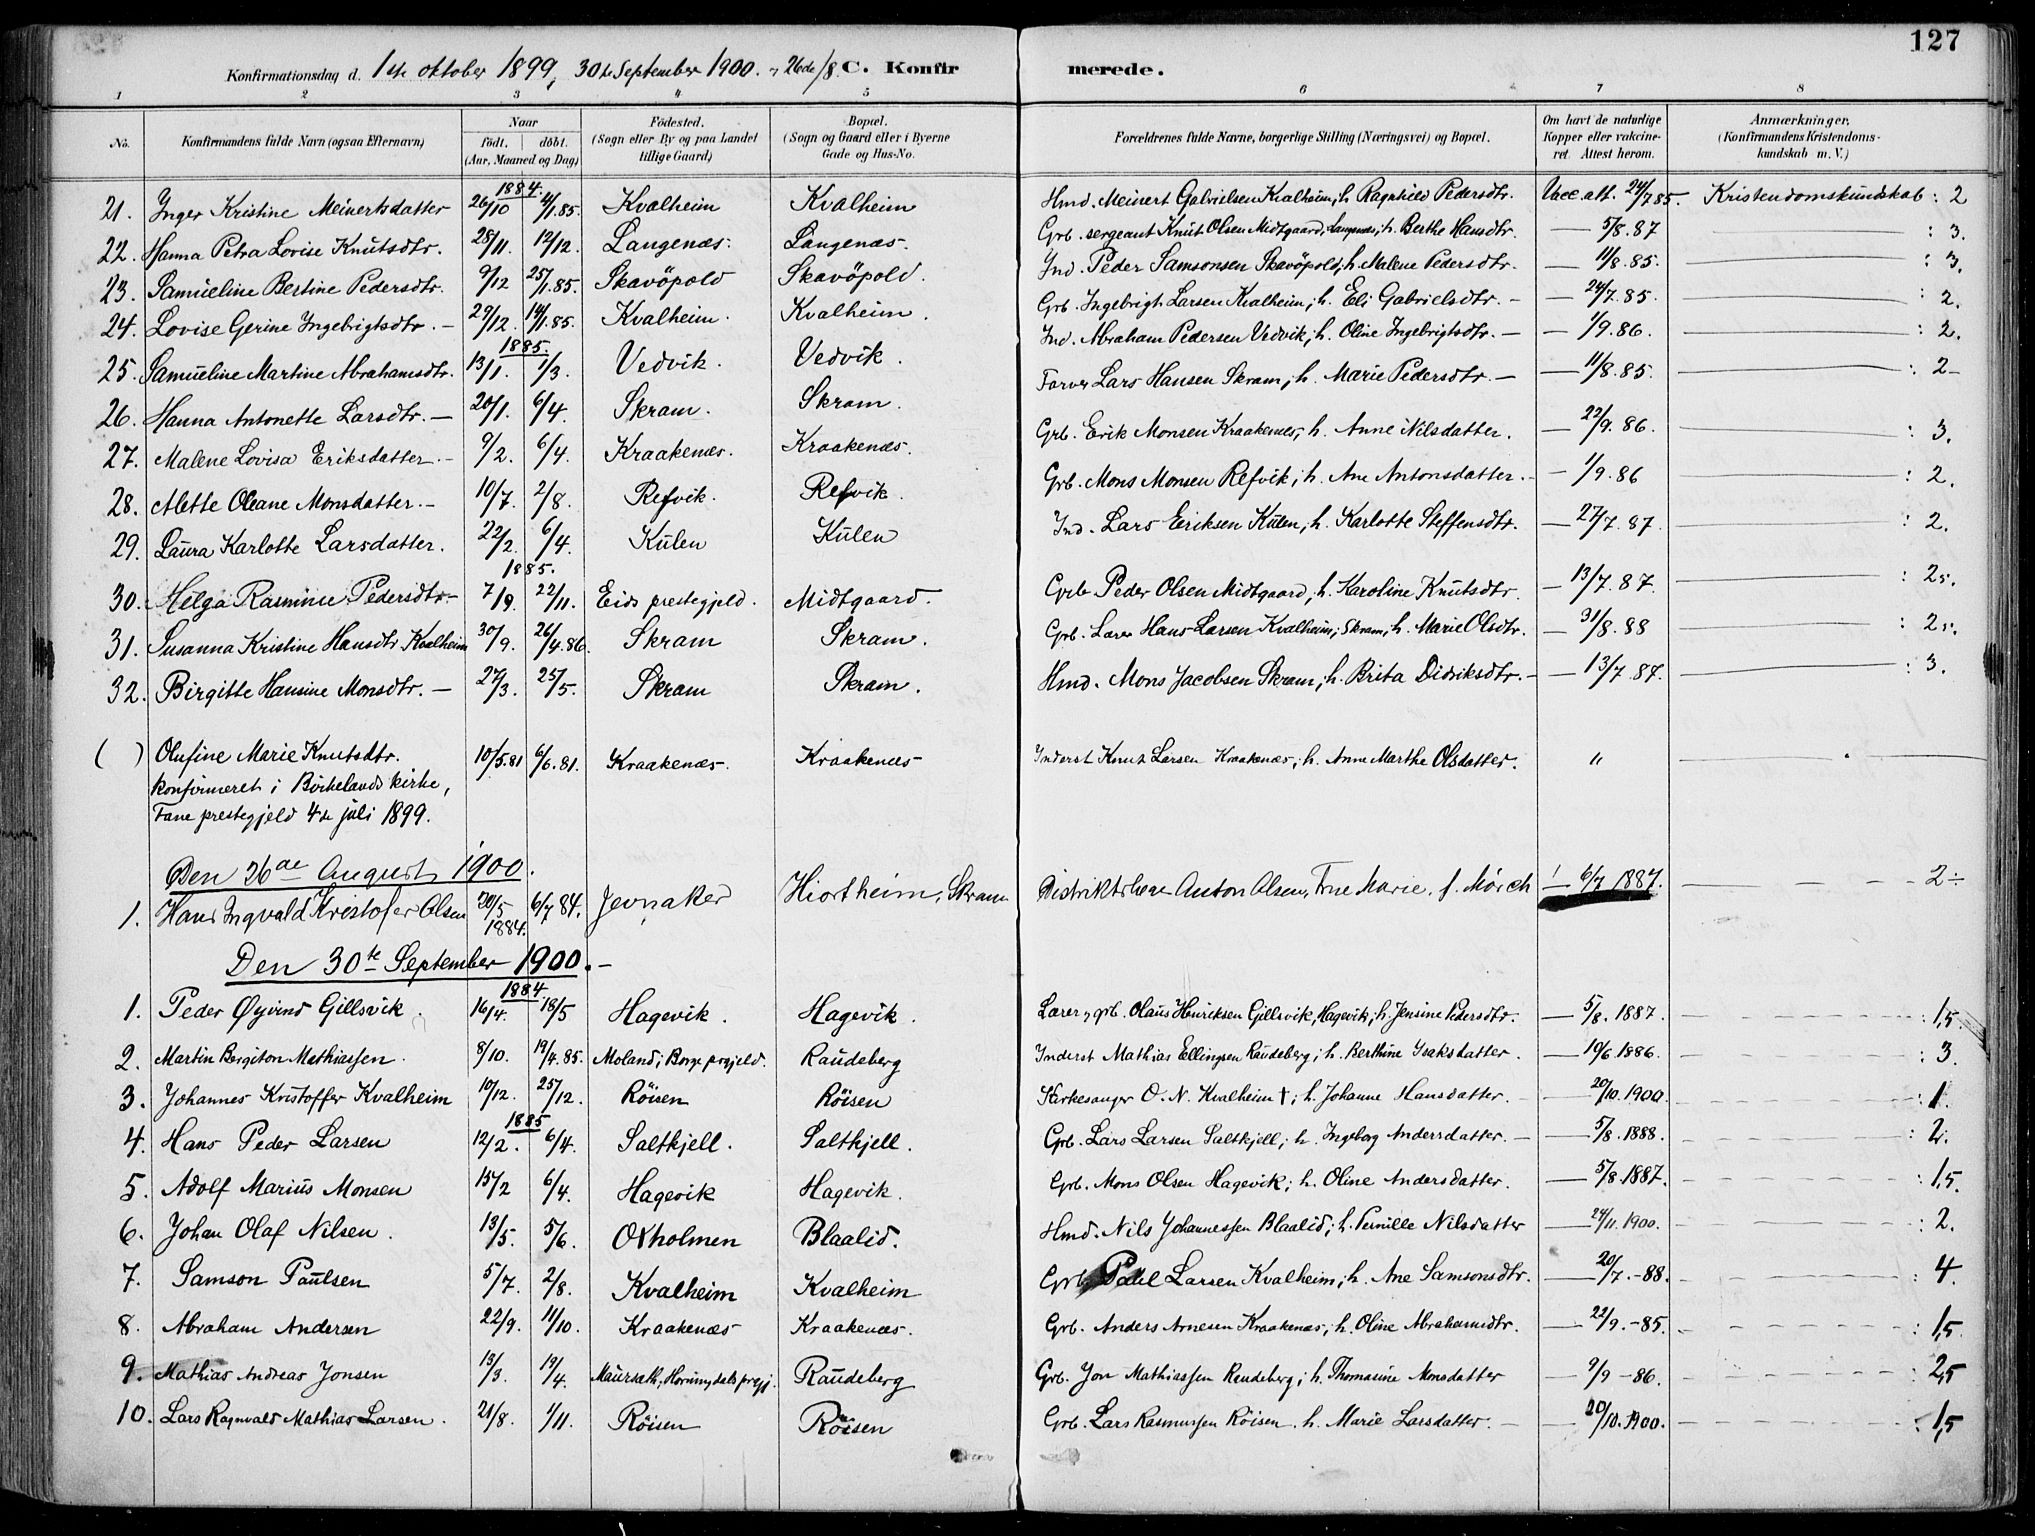 127
Konfirmationsdag d. 1ste oktober 1899, 30te September 1900. 26de/8. C. Konfirmerede.
1 2 3 4 5 6 7 8
No. Konfirmandens fulde Navn (ogsaa Efternavn) Naar født. døbt. (Aar, Maaned og Dag) Fødested. (Sogn eller By og paa Landet tillige Gaard) Bopæl. (Sogn og Gaard eller i Byerne Gade og Hus-No. Forældrenes fulde Navne, borgerlige Stilling (Næringsvei) og Bopæl. Om havt de naturlige Kopper eller vaccineret. Attest herom. Anmærkninger. (Konfirmandens Kristendomskundskab m. V.)
1884.
21. Inger Kristine Meinertsdatter 26/10 4/1.85. Kvalheim Kvalheim Hmd. Meinert Gabrielsen Kvalheim; h. Ragnhild Pedersdtr. Vacc. att. 24/7 85. Kristendomskundskab : 2
22. Hanna Petra Lovise Knutsdtr. 28/11. 12/12. Langenæs. Langenæs. Grb. sergeant Knut Olsen Midtgaard, Langenæs; h. Berthe Hansdtr. — 5/8. 87 : 3.
23. Samueline Bertine Pedersdtr. 9/12 25/1.85. Skavøpold Skavøpold. Ind. Peder Samsonsen Skavøpold; h. Malene Pedersdtr. — 11/8. 85. : 3.
24. Lovise Gerine Ingebrigtsdtr. — 29/12. 14/1.85. Kvalheim. Kvalheim. Grb. Ingebrigt Larsen Kvalheim; h. Eli Gabrielsdtr. — 24/7. 85. : 2.
1885.
25. Samueline Martine Abrahamsdtr. 13/1. 1/3. Vedvik. Vedvik. Ind. Abraham Pedersen Vedvik; h. Oline Ingebrigtsdtr. — 1/9. 86. : 2.
26. Hanna Antonette Larsdtr. — 20/1. 6/4. Skram. Skram. Lars Hansen Skram; h. Marie Pedersdtr. — 11/8. 85. : 2
27. Malene Lovisa Eriksdatter. — 9/2. 6/4. Kraakenæs. Kraakenæs. Grb. Erik Monsen Kraakenæs; h. Anne Nilsdatter. — 22/9. 86. : 3.
28. Alette Oleane Monsdatter. — 10/7. 2/8. Refvik. Refvik. Grb. Mons Monsen Refvik; h. Ane Antonsdatter. — 1/9. 86 : 2.
29. Laura Karlotte Larsdatter. 22/2. 6/4. Kulen Kulen Ind. Lars Eriksen Kulen; h. Karlotte Steffensdtr. — 27/7. 87. : 2.
1885.
30. Helga Rasmine Pedersdtr. — 7/9. 22/11. Eids prestegjeld. Midtgaard. Grb. Peder Olsen Midtgaard; h. Karoline Knutsdtr. — 13/7. 87. : 2,5.
31. Susanna Kristine Hansdtr. Kvalheim 30/9. 26/4.86. Skram Skram. Grb. Lærer Hans Larsen Kvalheim; Skram; h. Marie Olsdtr. — 31/8. 88 : 2,5.
32. Birgitte Hansine Monsdtr. — 27/3. 25/5. Skram Skram. Hmd. Mons Jacobsen Skram; h. Brita Didriksdtr. — 13/7. 87. : 3.
( ) Olufine Marie Knutsdtr. 10/5.81 6/6.81. Kraakenæs. Kraakenæs Inderst Knut Larsen Kraakenæs; h. Anne Marthe Olsdatter. "
konfirmeret i Birkelands kirke,
Fane prestegjeld 4de juli 1899.
Den 26de August 1900.
1. Hans Ingvald Kristofer Olsen 20/5 1884. 6/7 84. Jevnaker Hiortheim, Skram Distriktslæge Anton Olsen, Frue Marie. f. Mörch — 6/7 1887. 2÷
Den 30te September 1900. —
1884.
1. Peder Øyvind Gillsvik. 16/4. 18/5 Hagevik. Hagevik. Lærer, grb. Olaus Henriksen Gillsvik, Hagevik; h. Jensine Pedersdtr. — 5/8. 1887. : 1,5
2. Martin Bergiton Mathiassen. 8/10. 19/4. 85. Moland i Borge prgjeld. Raudeberg Inderst Mathias Ellingsen Raudeberg; h. Berthine Isaksdatter. — 19/6 1886. : 3.
3. Johannes Kristoffer Kvalheim 10/12. 25/12. Røisen Røisen Kirkesanger O. N. Kvalheim †; h. Johanne Hansdatter. — 20/10. 1900. : 1.
1885
4. Hans Peder Larsen 12/2. 6/4. Saltkjell. Saltkjell. Grb. Lars Larsen Saltkjell; h. Ingeborg Andersdatter. — 5/8. 1888. : 2.
5. Adolf Marius Monsen 15/2 6/4. Hagevik Hagevik. Grb. Mons Olsen Hagevik; h. Oline Andersdatter. — 5/8. 1887. : 1,5.
6. Johan Olaf Nilsen. 13/5. 5/6. Oxholmen Blaalid. Hmd. Nils Johannessen Blaalid; h. Pernille Nilsdatter — 24/11. 1900. : 2.
7. Samson Paulsen 5/7. 2/8. Kvalheim Kvalheim Grb. Paul Larsen Kvalheim; h. Ane Samsonsdtr. — 20/7. -88. : 4.
8. Abraham Andersen 22/9. 11/10. Kraakenæs Kraakenæs. Grb. Anders Arnesen Kraakenæs; h. Oline Abrahamsdtr. — 22/9. -85. : 1,5
9. Mathias Andreas Jonsen 13/3. 19/4. Maurseth, Hornindals prgj. Raudeberg Grb. Jon Mathiassen Raudeberg; h. Thomasine Monsdatter — 9/9 -86. : 2,5
10. Lars Ragnvald Mathias Larsen. 21/8. 1/11. Røisen Røisen Grb. Lars Rasmussen Røisen. h. Marie Larsdatter. — 20/10. 1900. : 1,5